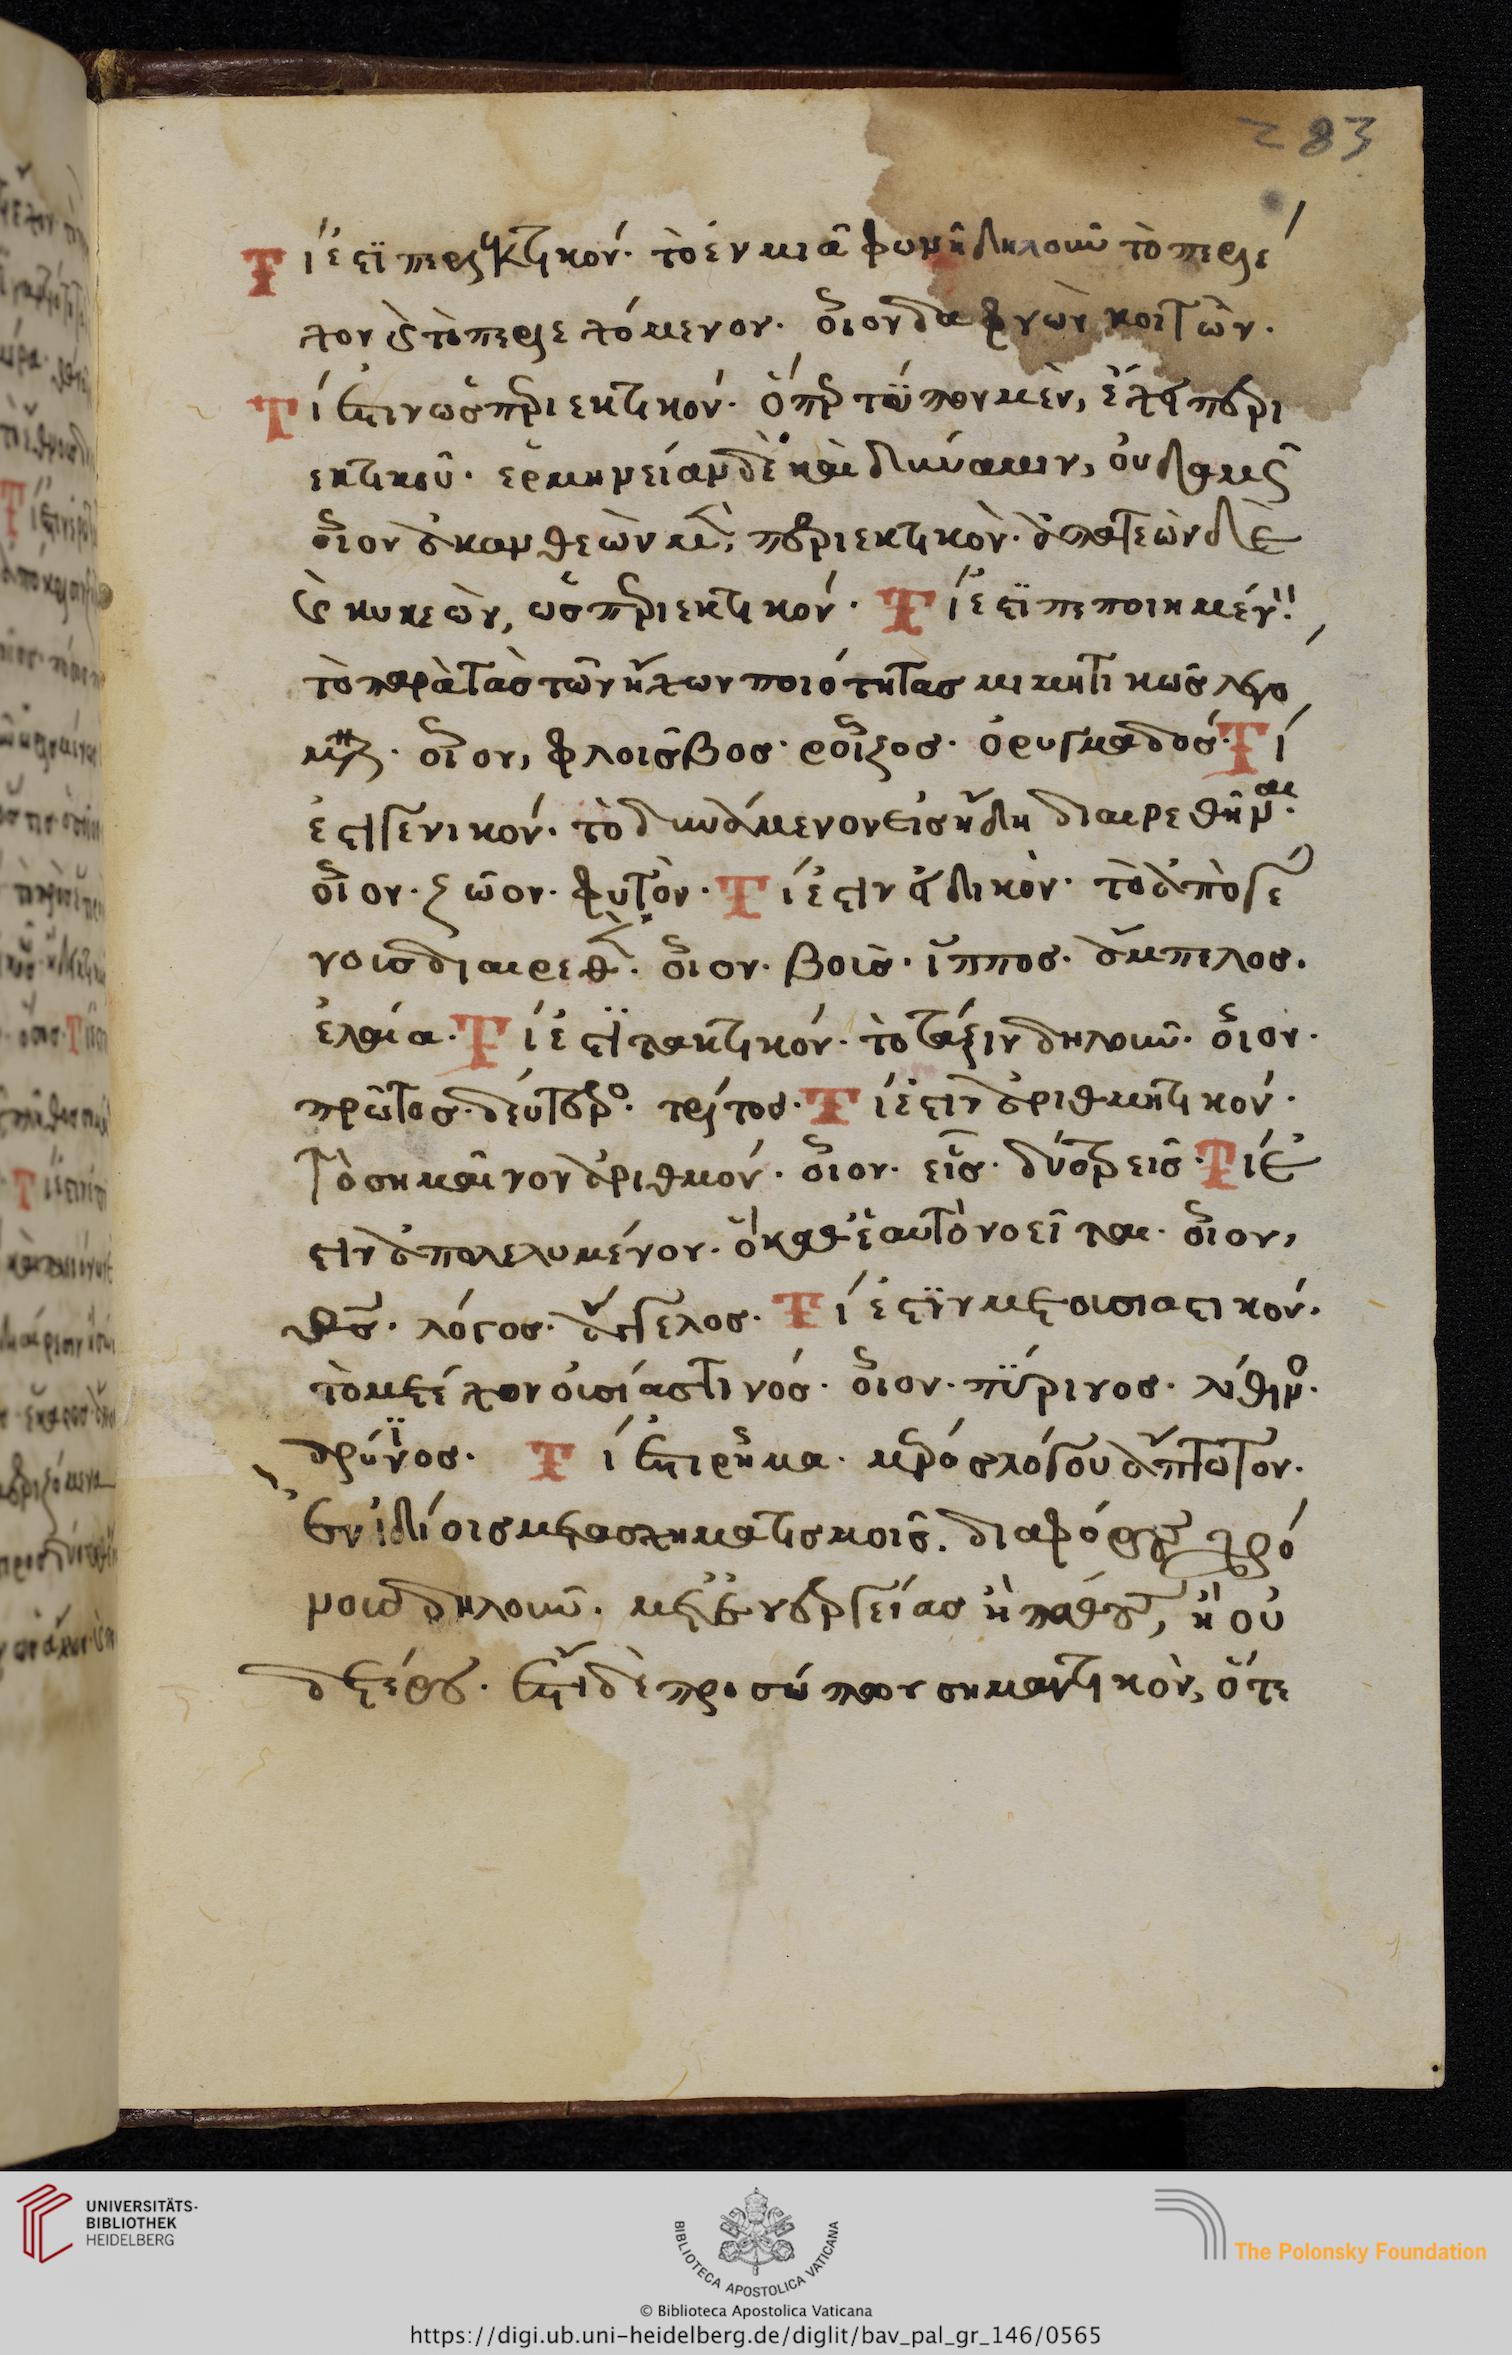 283
Τί ἐστι περιεκτικόν· τὸ ἐν μιᾷ φωνῇ δηλοῦν τὸ περιέ
χον καὶ τὸ περιεχόμενον· οἷον δαφνὼν κοιτών·
Τί ἐστιν ὡς περιεκτικόν· ὅπερ τύπον μὲν, ἔχει περι
εκτικοῦ· ἑρμηνείαν δὲ καὶ δύναμιν, οὐδαμῶς
οἷον ἀκανθεὼν μὲν, περιεκτικὸν· ἀπατεὼν δὲ
καὶ κυκεὼν, ὡς περιεκτικόν· Τί ἐστι πεποιημένον·
τὸ παρὰ τὰς τῶν ἤχων ποιότητας μιμητικῶς λεγό
μενον· οἷον, φλοῖσβος· ροῖζος· ὀρυγμαδός· Τί
ἐστι γενικόν· τὸ δυνάμενον εἰς εἴδη διαιρεθῆναι·
οἷον· ζῶον· φυτὸν· Τί ἐστιν εἰδικὸν· τὸ ἀπὸ γέ
νους διαιρεθὲν· οἷον· βοῦς· ἵππος· ἄμπελος·
ἐλαία· Τί ἐστι τακτικόν· τὸ τάξιν δηλοῦν· οἷον·
πρῶτος· δεύτερος· τρίτος· Τί ἐστιν ἀριθμητικόν·
Τὸ σημαῖνον ἀριθμόν· οἷον· εἷς· δύο τρεῖς· Τί ἐ
στιν ἀπολελυμένον· ὃ καθ' ἑαυτὸ νοεῖται· οἷον,
θεός· λόγος· ἄγγελος· Τί ἐστιν μετουσιαστικόν·
τὸ μετέχον οὐσίας τινός· οἷον· πύρινος· λίθινος·
δρύϊνος· Τί ἐστι ρῆμα· μέρος λόγου ἄπτωτον·
ἐν ἰδίοις μετασχηματισμοῖς· διαφόρων χρό
νους δηλοῦν· μετ' ἐνεργείας ἢ πάθους, ἢ οὐ
δετέρου· ἔστι δὲ προσώπων σημαντικὸν, ὅτε
UNIVERSITÄTS-
BIBLIOTHEK
HEIDELBERG
BIBLIOTECA APOSTOLICA VATICANA
The Polonsky Foundation
© Biblioteca Apostolica Vaticana
https://digi.ub.uni-heidelberg.de/diglit/bav_pal_gr_146/0565